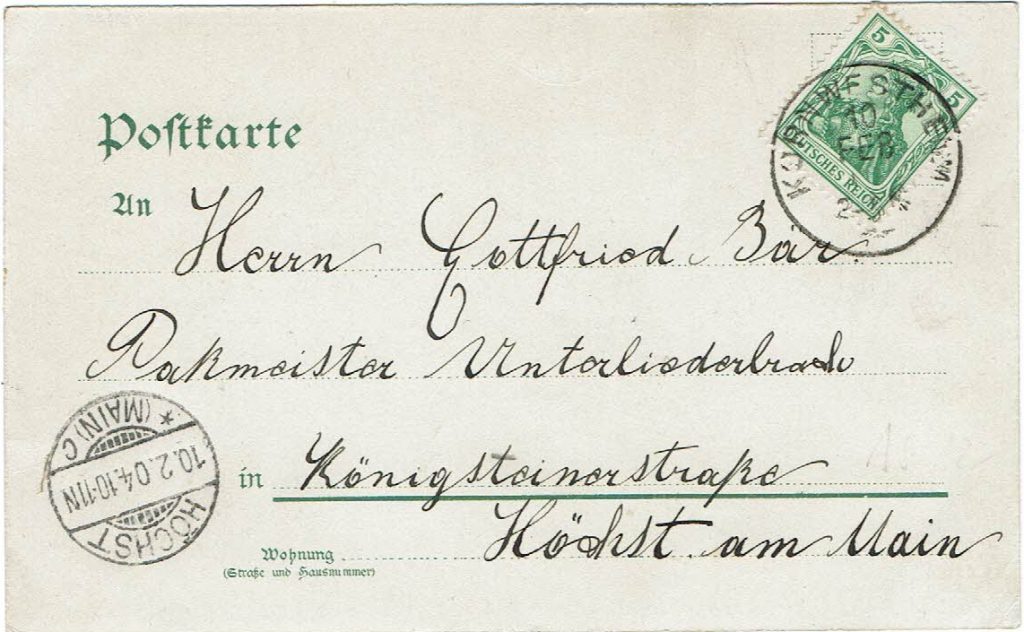 5 5
DEUTSCHES REICH
KORNWESTHEIM
10
FEB
Postkarte
An Herrn Gottfried Bär
Pakmeister Unterliederbach
in Königsteinerstraße
Höchst am Main
Wohnung
(Straße und Hausnummer)
HÖCHST
10.2.04.10-11N
* (MAIN) C